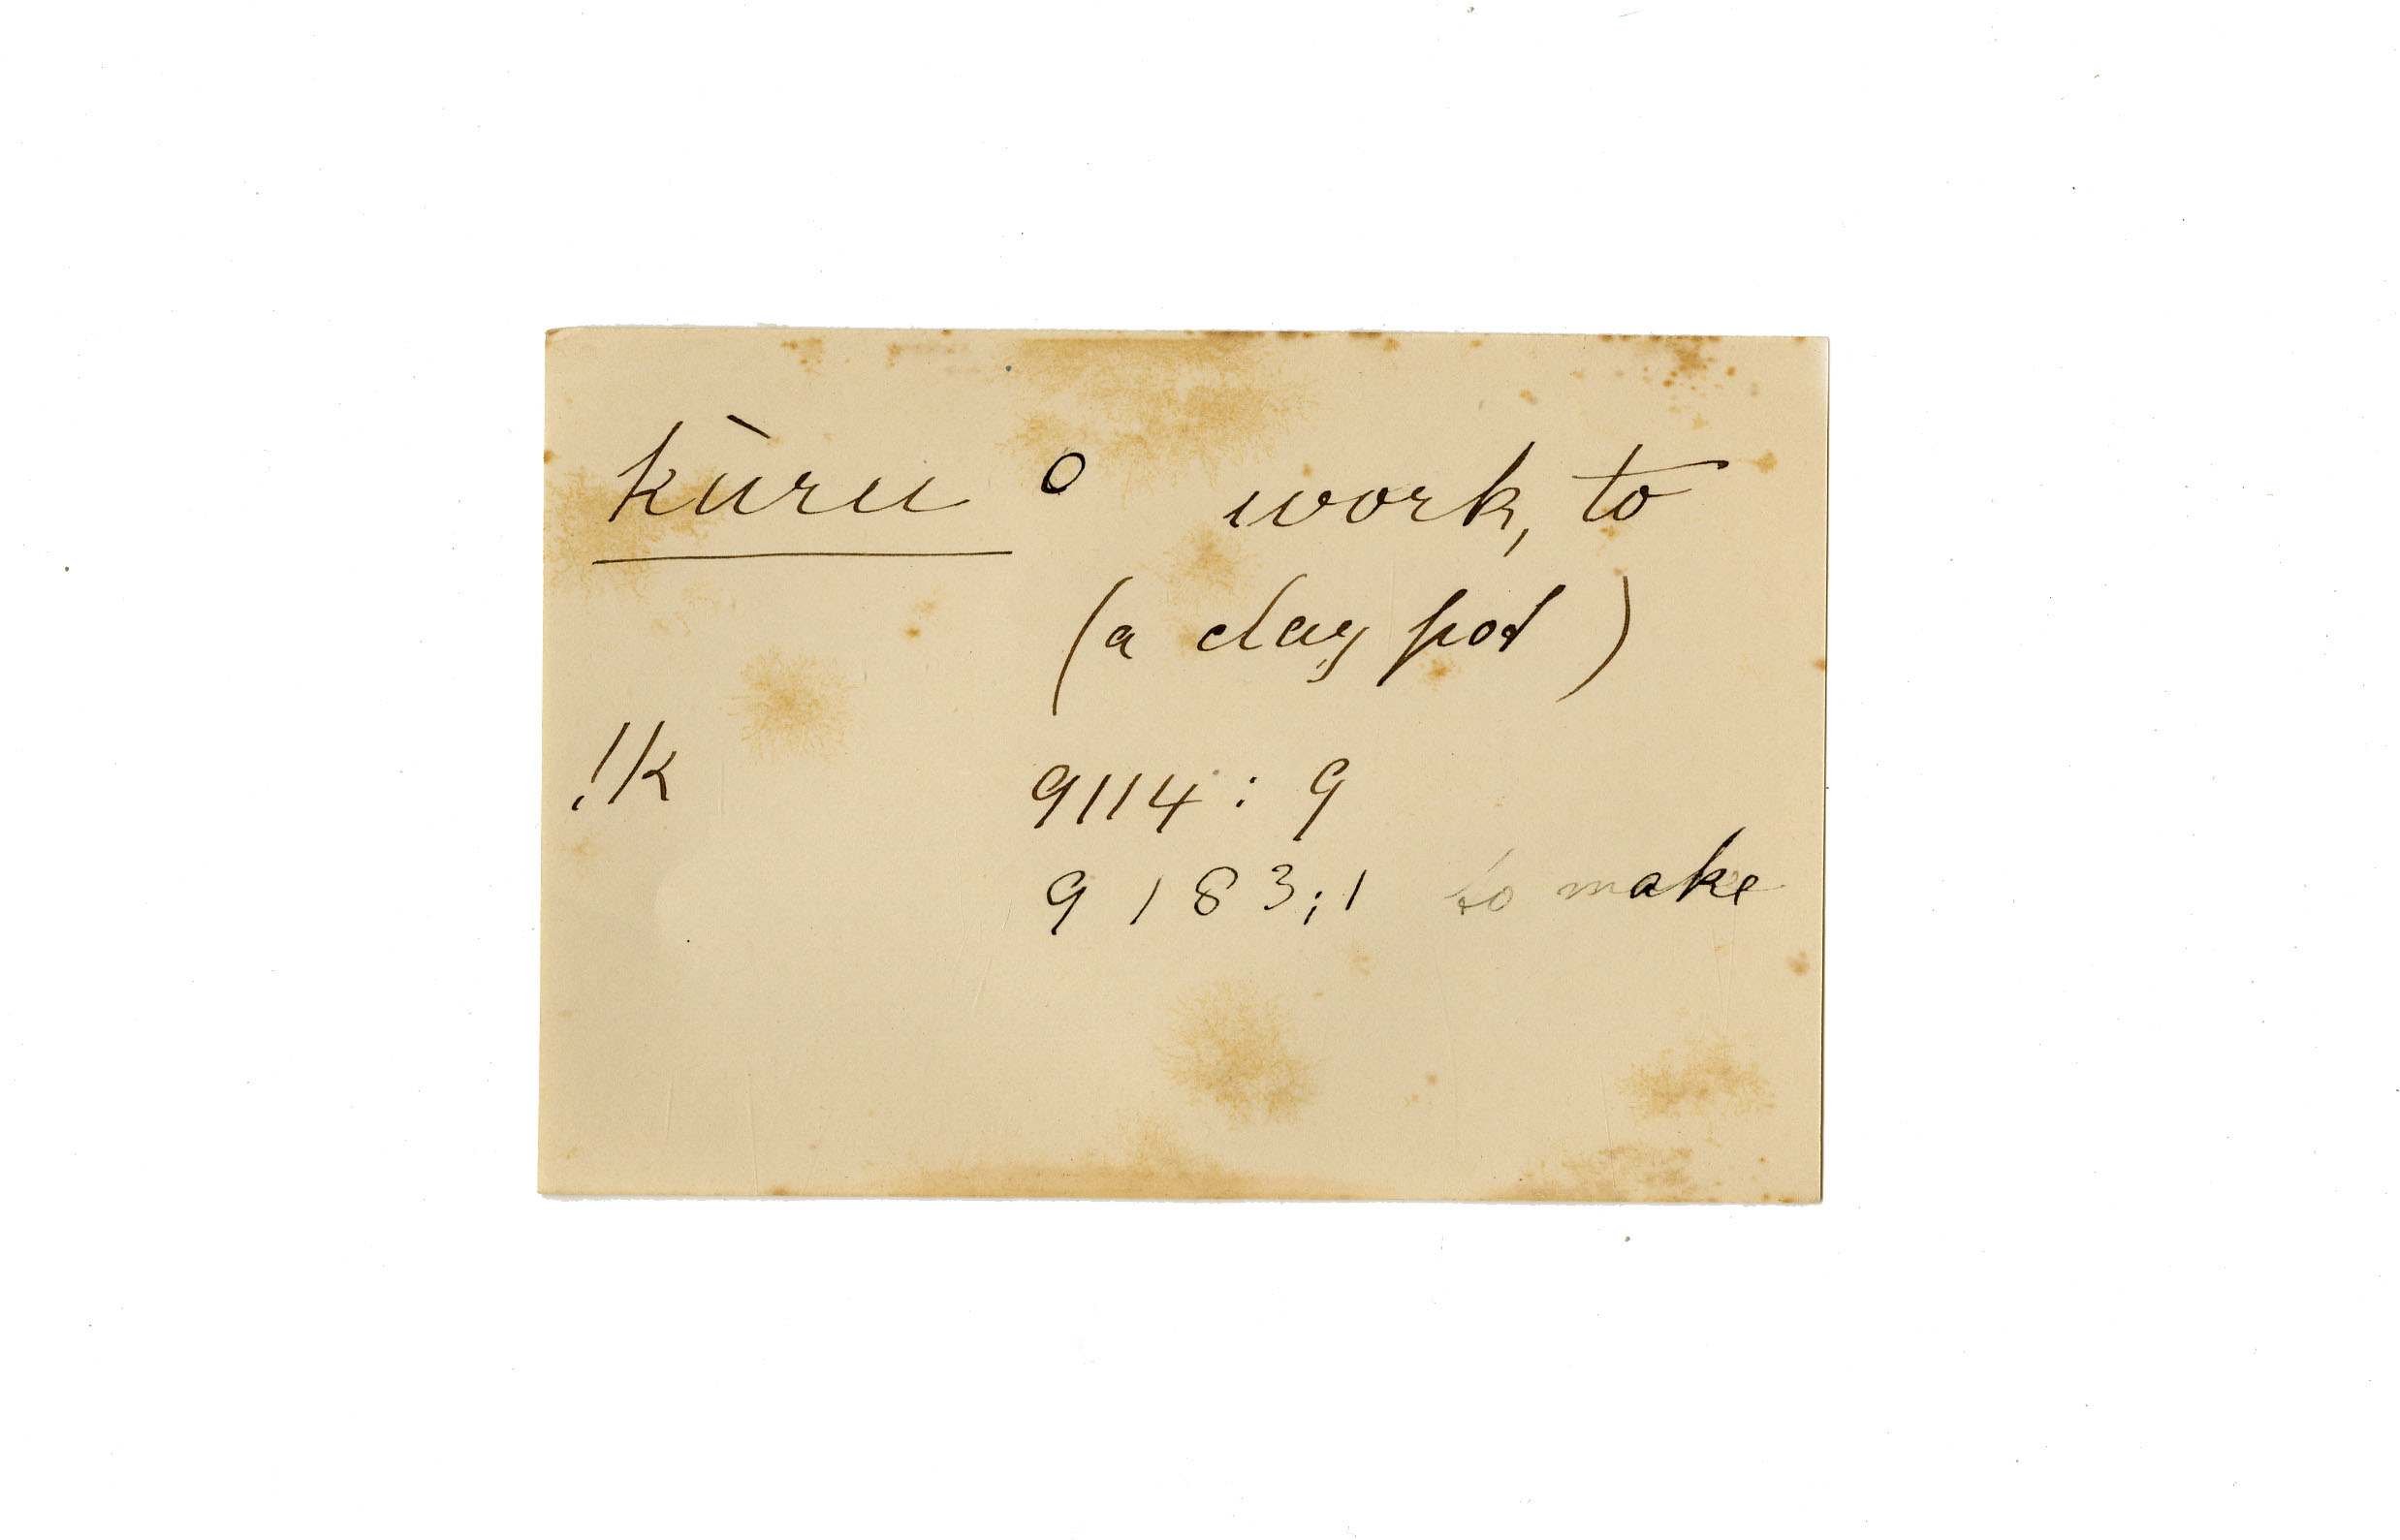 kùru o work, to
(a clay pot)
!k 9114 : 9
9183;1 to make